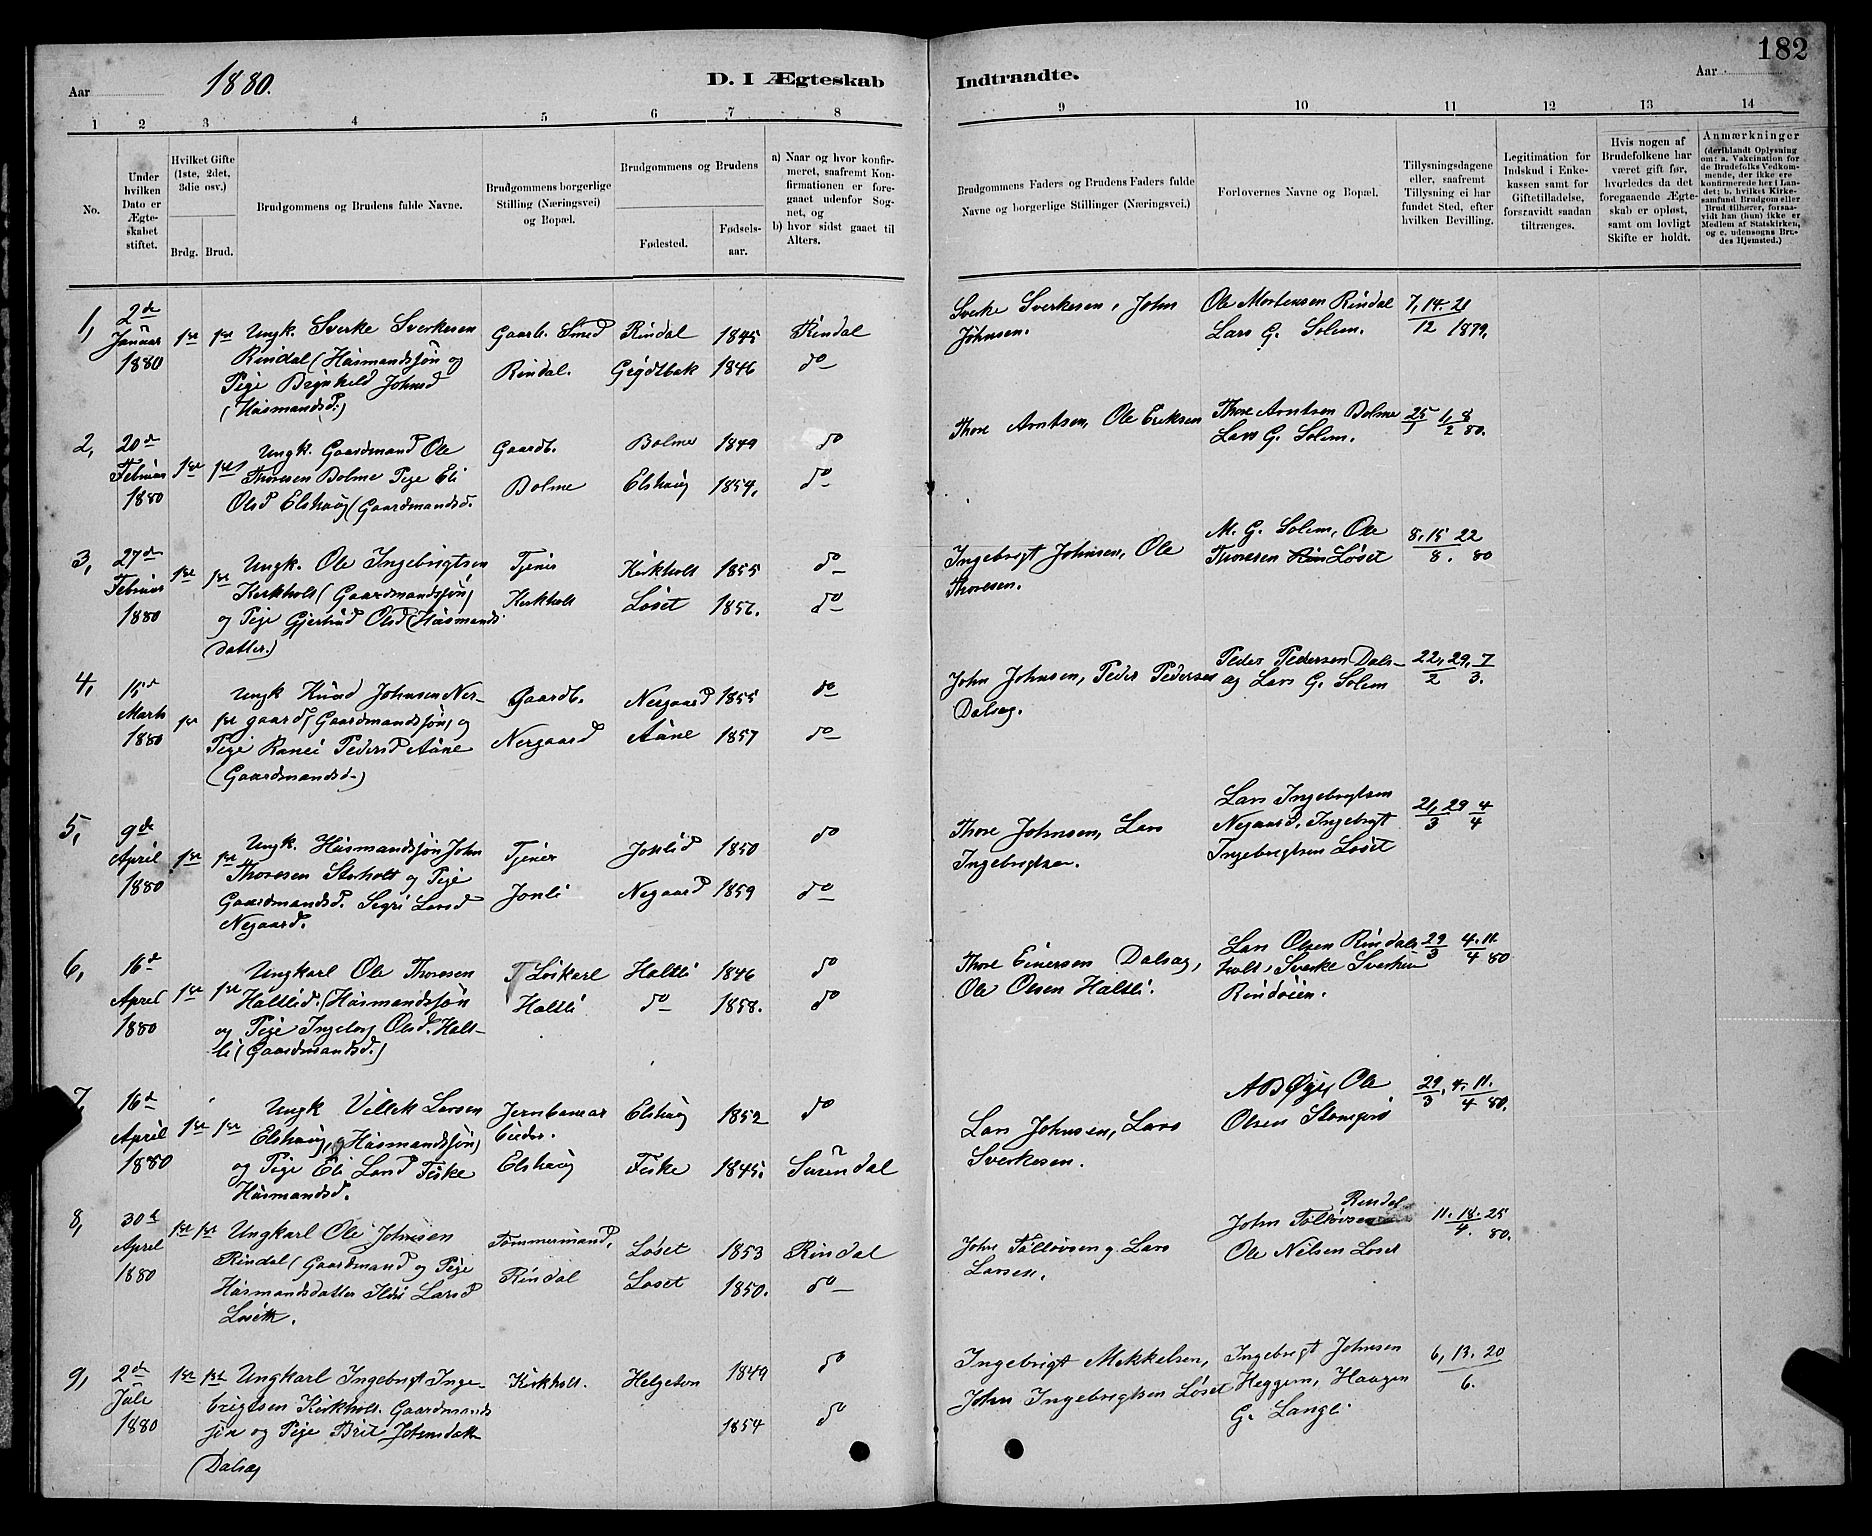 182
Aar 1880. D. I Ægteskab Indtraadte. Aar
1 2 3 4 5 6 7 8 9 10 11 12 13 14
No.
Under hvilken Dato er Ægteskabet stiftet.
Hvilket Gifte (1ste, 2det, 3die osv.)
Brdg. Brud.
Brudgommens og Brudens fulde Navne.
Brudgommens borgerlige Stilling (Næringsvei) og Bopæl.
Brudgommens og Brudens
Fødested.
Fødsels-aar.
a) Naar og hvor konfir-
meret, saafremt Kon-
firmationen er fore-
gaaet udenfor Sog-
net, og
b) hvor sidst gaaet til
Alters.
Brudgommens Faders og Brudens Faders fulde
Navne og borgerlige Stillinger (Næringsvei.)
Forlovernes Navne og Bopæl.
Tillysningsdagene
eller, saafremt
Tillysning ei har
fundet Sted, efter
hvilken Bevilling.
Legitimation for
Indskud i Enke-
kassen samt for
Giftetilladelse,
forsaavidt saadan
tiltrænges.
Hvis nogen af
Brudefolkene har
været gift før,
hvorledes da det
foregaaende Ægte-
skab er opløst,
samt om lovligt
Skifte er holdt.
Anmærkninger
(deriblandt Oplysning
om: a. Vakcination for
de Brudefolks Vedkom-
mende, der ikke ere
konfirmerede her i Lan-
det; b. hvilket Kirke-
samfund Brudgom eller
Brud tilhører, forsaa-
vidt han (hun) ikke er
Medlem af Statskirken,
og c. udensogns Bru-
des Hjemsted.)
1, 2de Januar 1880 1ste 1ste Ungk. Sverke Sverkesen
Rindal (Husmandssøn og
Pige Brynhild Johnsd
(Husmandsd.)
Gaardb. Smed
Rindal.
Rindal 1845 Rindal
Grydtbak 1846 do
Sverke Sverkesen, John
Johnsen.
Ole Mortensen Rindal
Lars G. Solem.
7, 14. 21
12 1879.
2, 20de Februar 1880 1ste 1ste Ungk. Gaardmand Ole
Thoresen Bolme Pige Eli
Olsd Elshaug (Gaardmandsd.
Gaardb.
Bolme
Bolme 1849 do
Elshaug 1854, do
Thore Arntsen, Ole Eriksen
Thore Arntsen Bolme
Lars G. Solem.
25/1 1, 8/2 80.
3, 27de Februar 1880 1ste 1ste Ungk. Ole Ingebrigtsen
Kirkholt (Gaardmandssøn)
og Pige Gjertrud Olsd (Husmands
datter.)
Tjener
Kirkholt
Kirkholt 1855 do
Løset 1856. do
Ingebrigt Johnsen, Ole
Thoresen.
M. G. Solem, Ole
Thoresen Løset
8, 15 22
8. 80
4, 15de Marts 1880 1ste 1ste Ungk Knud Johnsen Ner-
gaard (Gaardmandssøn) og
Pige Ranei Pedersd Aune
(Gaardmandsd.)
Gaardb.
Nergaard
Nergaard 1855 do
Aune 1857 do
John Johnsen, Peder Pedersen
Dalsag.
Peder Pedersen Dals-
ag Lars G. Solem
22, 29, 7
2 3.
5, 9de April 1880 1ste 1ste Ungk. Husmandssøn John
Thoresen Storholt og Pige
Gaardmandsd. Sigri Larsd
Negaard.
Tjener
Jonli
Jonlid 1850 do
Negaard 1859 do
Thore Johnsen, Lars
Ingebrigtsen.
Lars Ingebrigtsen
Negaard, Ingebrigt
Ingebrigtsen Løset
21, 29 4
3 4
6, 16de April 1880 1ste 1ste Ungkarl Ole Thoresen
Haltlid. (Husmandssøn
og Pige Ingeborg Olsd. Halt-
li (Gaardmandsd.)
Løskarl
Haltli
Haltli 1846 do
do 1858. do
Thore Einersen Dalsag,
Ole Olsen Haltli.
Lars Olsen Rindals
holt, Sverke Sverkesen
Rindøien.
29 4. 11.
3 4 80
7, 16de April 1880 1ste 1ste Ungk Larsen
Elshaug, Husmandssøn)
og Pige Eli Larsd Fiske
Husmandsd.
Jernbanear
beider.
Elshaug
Elshaug 1852 do
Fiske 1845. Surendal
Lars Johnsen, Lars
Sverkesen.
Ole
Olsen Stomprø
29, 4. 11.
3 4 80.
8, 30te April 1880 1ste 1ste Ungkarl Ole Johnsen
Rindal (Gaardmand og Pige
Husmandsdatter Ildri Larsd
Løset.
Tømmermand,
Rindal
Løset 1853 Rindal
Løset 1850. do
John g. Lars
Larsen.
John Rindal
Ole Nilsen Løset
11. 18. 25
4. 80.
9, 2de Juli 1880 1ste 1ste Ungkarl Ingebrigt Inge-
brigtsen Kirkholt. Gaardmands
søn og Pige Brit Johnsdatt
(Dalsag
Kirkholt.
Helgeton 1849 do
1854 do
Ingebrigt Mikkelsen,
John Ingebrigtsen Løset
Ingebrigt Johnsen
Heggem, Haagen
G. Langli
6, 13. 20
6.